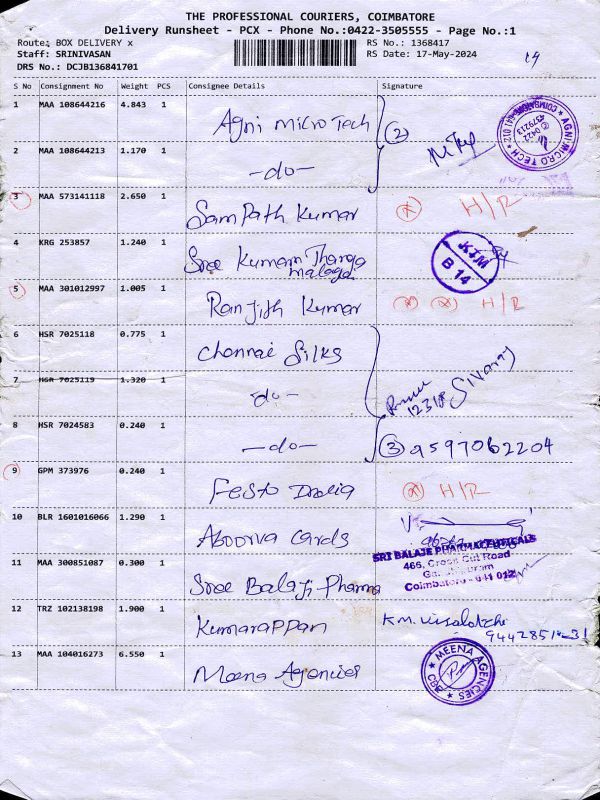 THE PROFESSIONAL COURIERS, COIMBATORE
Delivery Runsheet - PCX - Phone No.:0422-3505555 - Page No.:1
Route: BOX DELIVERY x
RS No.: 1368417
Staff: SRINIVASAN
RS Date: 17-May-2024
DRS No.: DCJB136841701
S No Consignment No Weight PCS Consignee Details Signature
1 MAA 108644216 4.843 1 Agni Micro Tech 2
AGNI MICRO TECH
2 MAA 108644213 1.170 1 -do-
3 MAA 573141118 2.650 1 Sampath Kumar H/R
4 KRG 253857 1.240 1 Sree Kumaran Thanga maligai
KTM
B 14
5 MAA 301012997 1.005 1 Ranjith Kumar H/R
6 HSR 7025118 0.775 1 Chennai Silks
7 HSR 7025119 1.320 1 -do-
12318 Sivaraj
8 HSR 7024583 0.240 1 -do- 3 9597062204
9 GPM 373976 0.240 1 Festo India H/R
10 BLR 1601016066 1.290 1 Apoorva Cards
11 MAA 300851087 0.300 1 Sree Balaji Pharma
SRI BALAJE PHARMACEUTICALS
466, Cross Cut Road
Coimbatore - 641 012
12 TRZ 102138198 1.900 1 Kumarappan K.M. Visalatchi
9442851431
13 MAA 104016273 6.550 1 Meena Agencies
MEENA AGENCIES
CBE